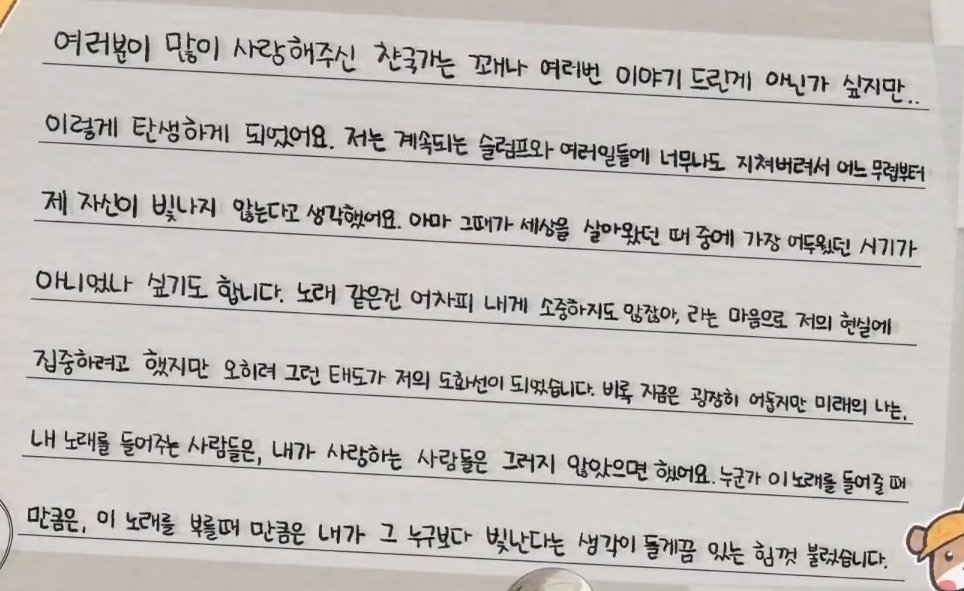 여러분이 많이 사랑해주신 챤국가는 꽤나 여러번 이야기 드린게 아닌가 싶지만..
이렇게 탄생하게 되었어요. 저는 계속되는 슬럼프와 여러일들에 너무나도 지쳐버려서 어느 무렵부터
제 자신이 빛나지 않는다고 생각했어요. 아마 그때가 세상을 살아왔던 때 중에 가장 어두웠던 시기가
아니었나 싶기도 합니다. 노래 같은건 어차피 내게 소중하지도 않잖아, 라는 마음으로 저의 현실에
집중하려고 했지만 오히려 그런 태도가 저의 도화선이 되었습니다. 비록 지금은 굉장히 어둡지만 미래의 나는,
내 노래를 들어주는 사람들은, 내가 사랑하는 사람들은 그러지 않았으면 했어요. 누군가 이 노래를 들어줄 때
만큼은, 이 노래를 부를때 만큼은 내가 그 누구보다 빛난다는 생각이 들게끔 있는 힘껏 불렀습니다.